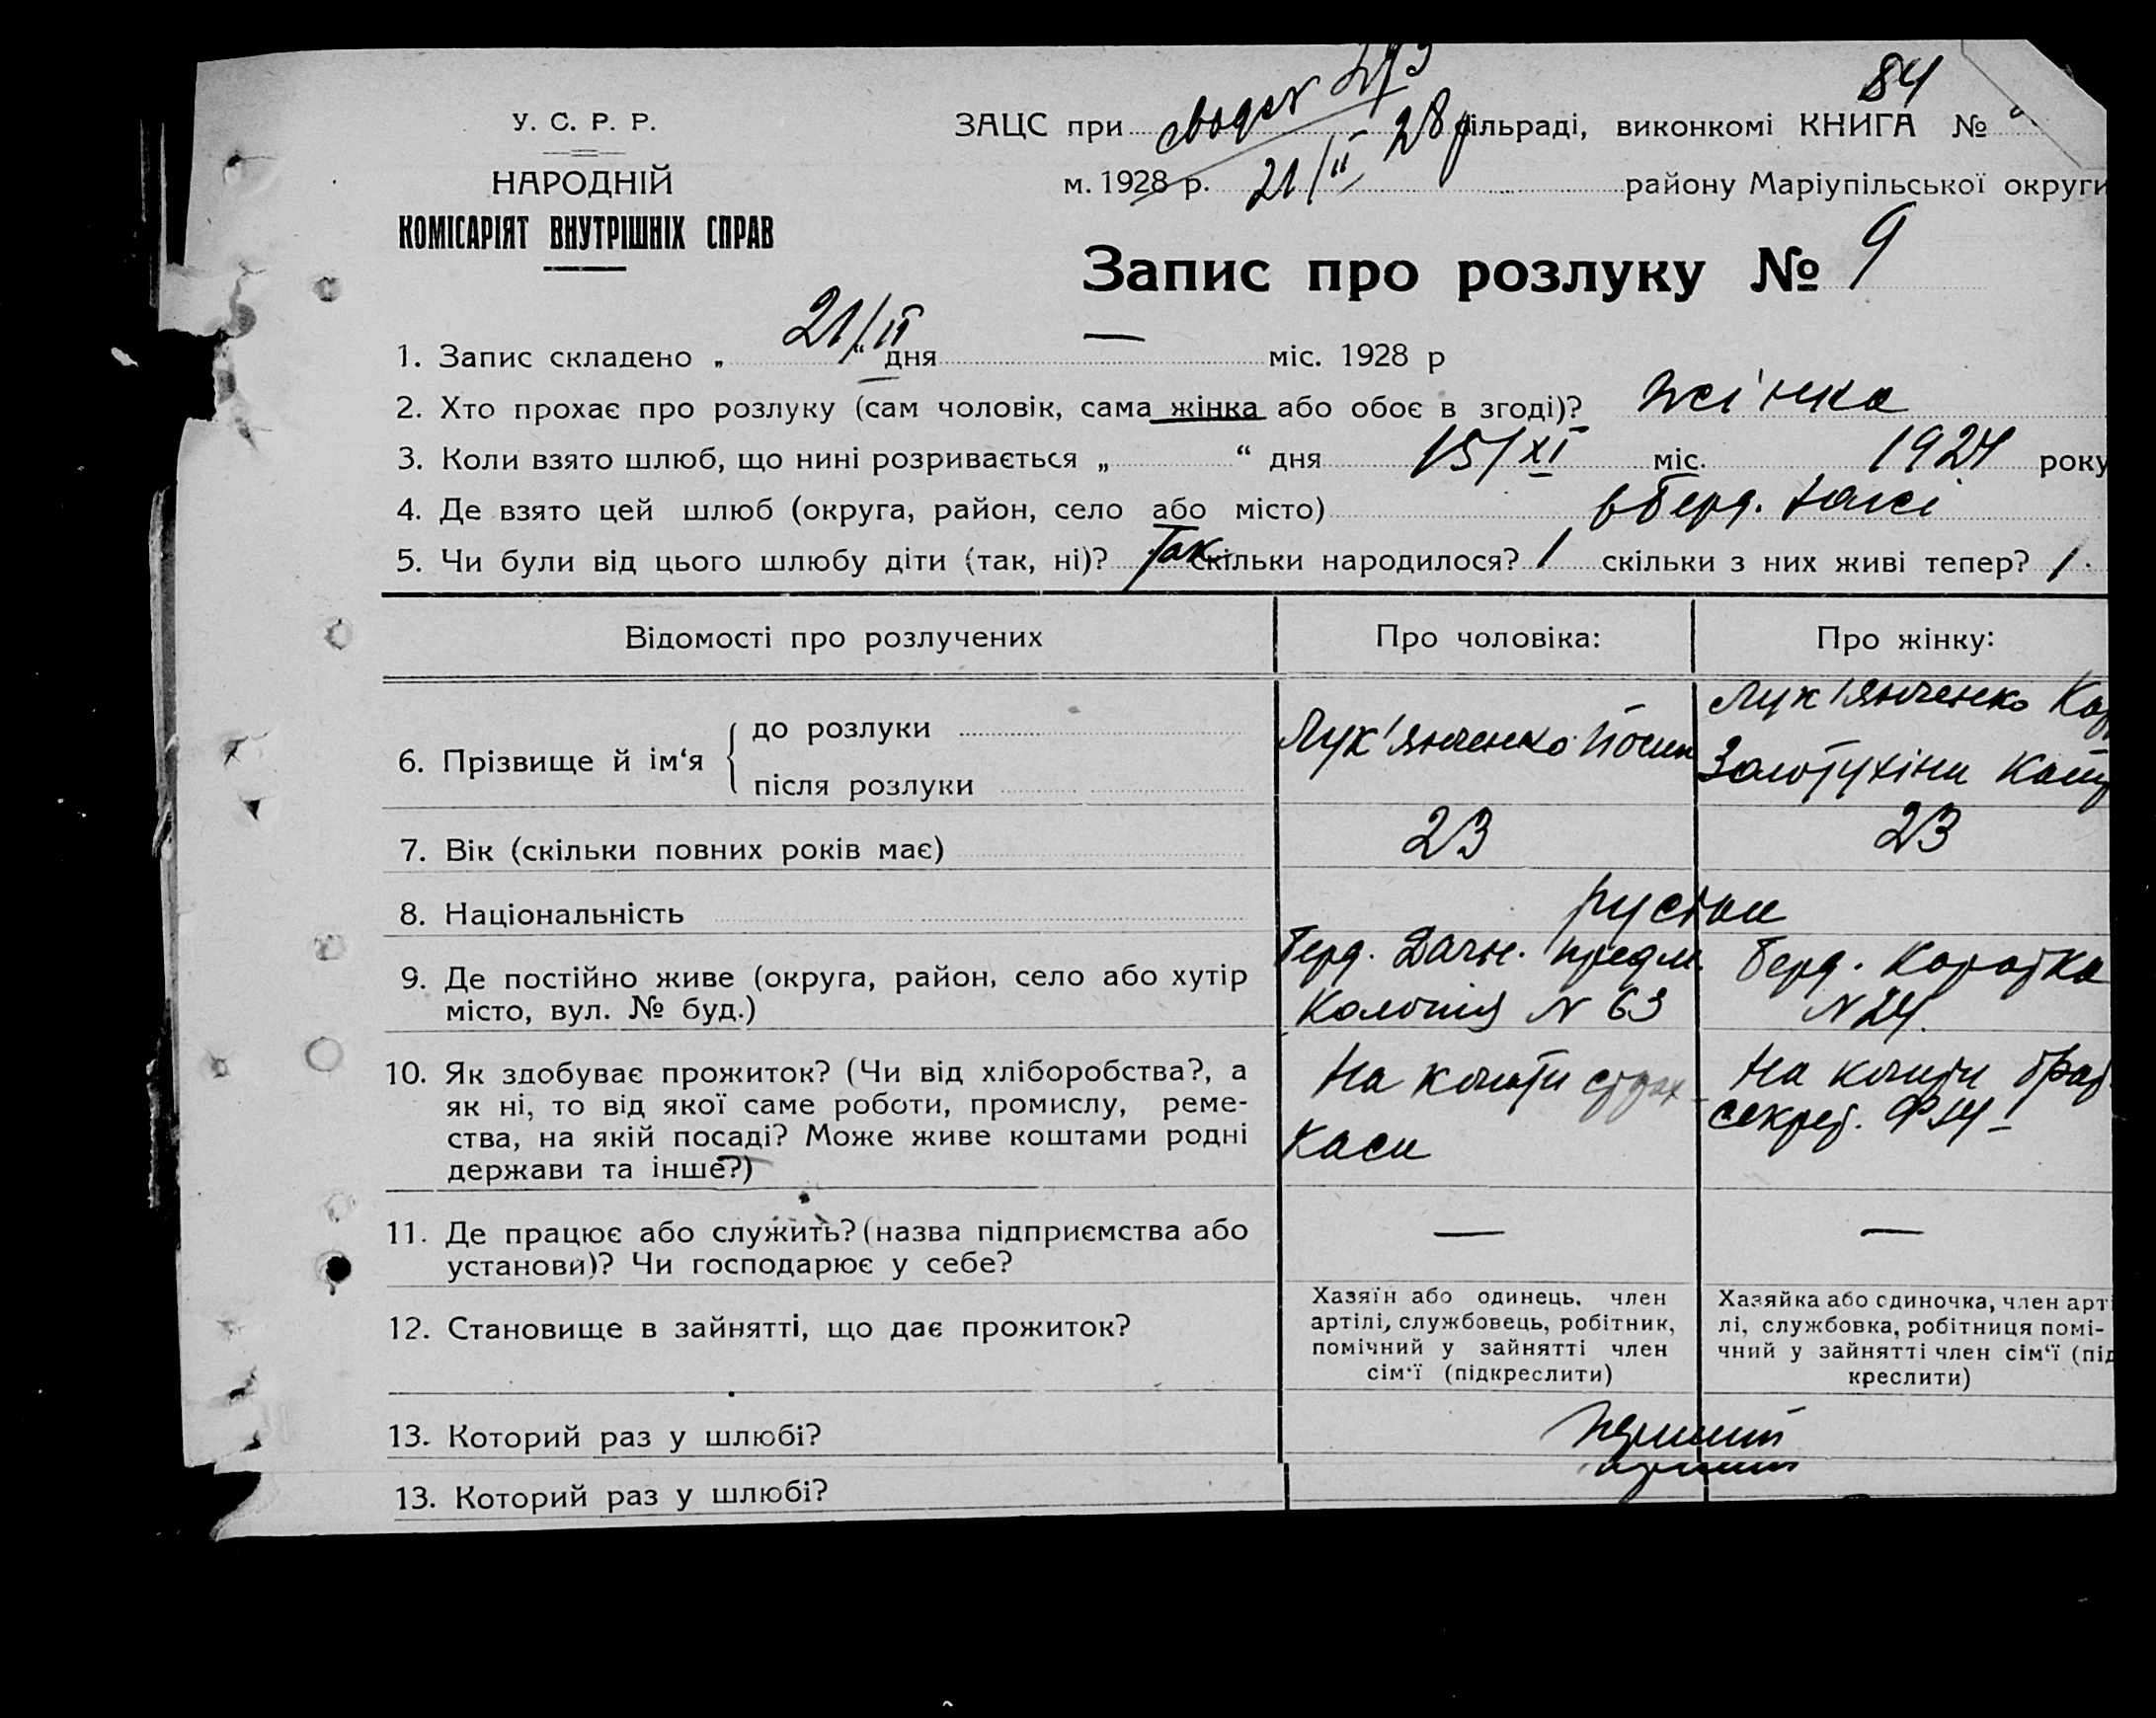 84
У. С. Р. Р.
ЗАЦС при 28 р сільраді, виконкомі КНИГА №
НАРОДНІЙ
м. 1928 р. 21/II району Маріупільської округи
КОМІСАРІЯТ ВНУТРІШНІХ СПРАВ
Запис про розлуку № 9
1. Запис складено „ 21/II “ дня — міс. 1928 р
2. Хто прохає про розлуку (сам чоловік, сама жінка або обоє в згоді)? жінка
3. Коли взято шлюб, що нині розривається „ “ дня 15/XI міс. 1924 року
4. Де взято цей шлюб (округа, район, село або місто) в Берд. Загсі
5. Чи були від цього шлюбу діти (так, ні)? Так скільки народилося? 1 скільки з них живі тепер? 1.
Відомості про розлучених Про чоловіка: Про жінку:
6. Прізвище й ім‘я
до розлуки
після розлуки
Лук'янченко
Лук'янченко
Золотухіна
7. Вік (скільки повних років має) 23 23
8. Національність руські
9. Де постійно живе (округа, район, село або хутір
місто, вул. № буд.)
Берд. Дачн. предм.
Колонія N 63
Берд. Коротка
N 24.
10. Як здобуває прожиток? (Чи від хліборобства?, а
як ні, то від якої саме роботи, промислу, реме-
ства, на якій посаді? Може живе коштами родні
держави та інше?)
На кошти страх
каси
На кошти брат
секрет.
11. Де працює або служить? (назва підприємства або
установи)? Чи господарює у себе?
— —
12. Становище в зайнятті, що дає прожиток?
Хазяїн або одинець. член
артілі, службовець, робітник,
помічний у зайнятті член
сім‘ї (підкреслити)
Хазяйка або одиночка, член арті
лі, службовка, робітниця помі-
чний у зайнятті член сім‘ї (під
креслити)
13. Которий раз у шлюбі? перший
13. Которий раз у шлюбі?